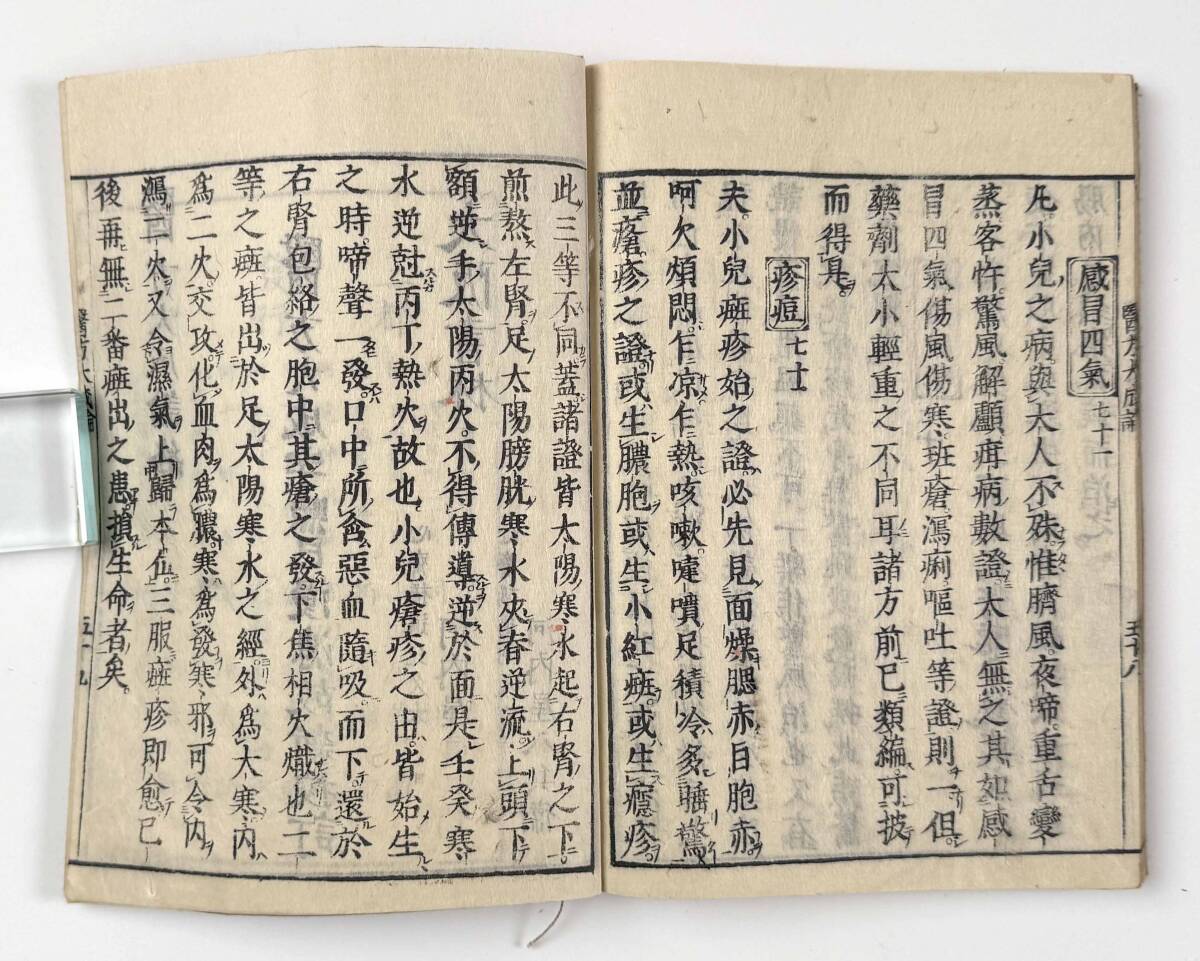 感冒四氣 七十一
凡小兒之病與大人不殊惟臍風夜啼重舌變
蒸客忤驚風解顱疳病數證大人無之其如感
冒四氣傷風傷寒班瘡瀉痢嘔吐等證則一但
藥劑大小輕重之不同耳諸方前已類編可披
而得其
疹痘 七十二
夫小兒班疹始之證必先見面燥腮赤目胞赤
呵欠煩悶乍凉乍熱咳嗽嚏噴足積冷多睡驚
並瘡疹之證或生膿胞或生小紅班或生癮疹
五十八
此三等不同蓋諸證皆太陽寒水起右腎之下
煎熬左腎足太陽膀胱寒水夾脊逆流上頭下
額逆手太陽丙火不得傳導逆於面是壬癸寒
水逆尅丙丁熱火故也小兒瘡疹之由皆始生
之時啼聲一發口中所含惡血隨吸而下還於
右腎包絡之胞中其瘡之發下焦相火熾也二
等之班皆出於足太陽寒水之經外爲大寒內
爲二火交攻化血肉爲膿寒爲發寒邪可令內
瀉二火又令濕氣上歸本位三服班疹即愈已
後再無二番班出之患損生命者矣
五十九